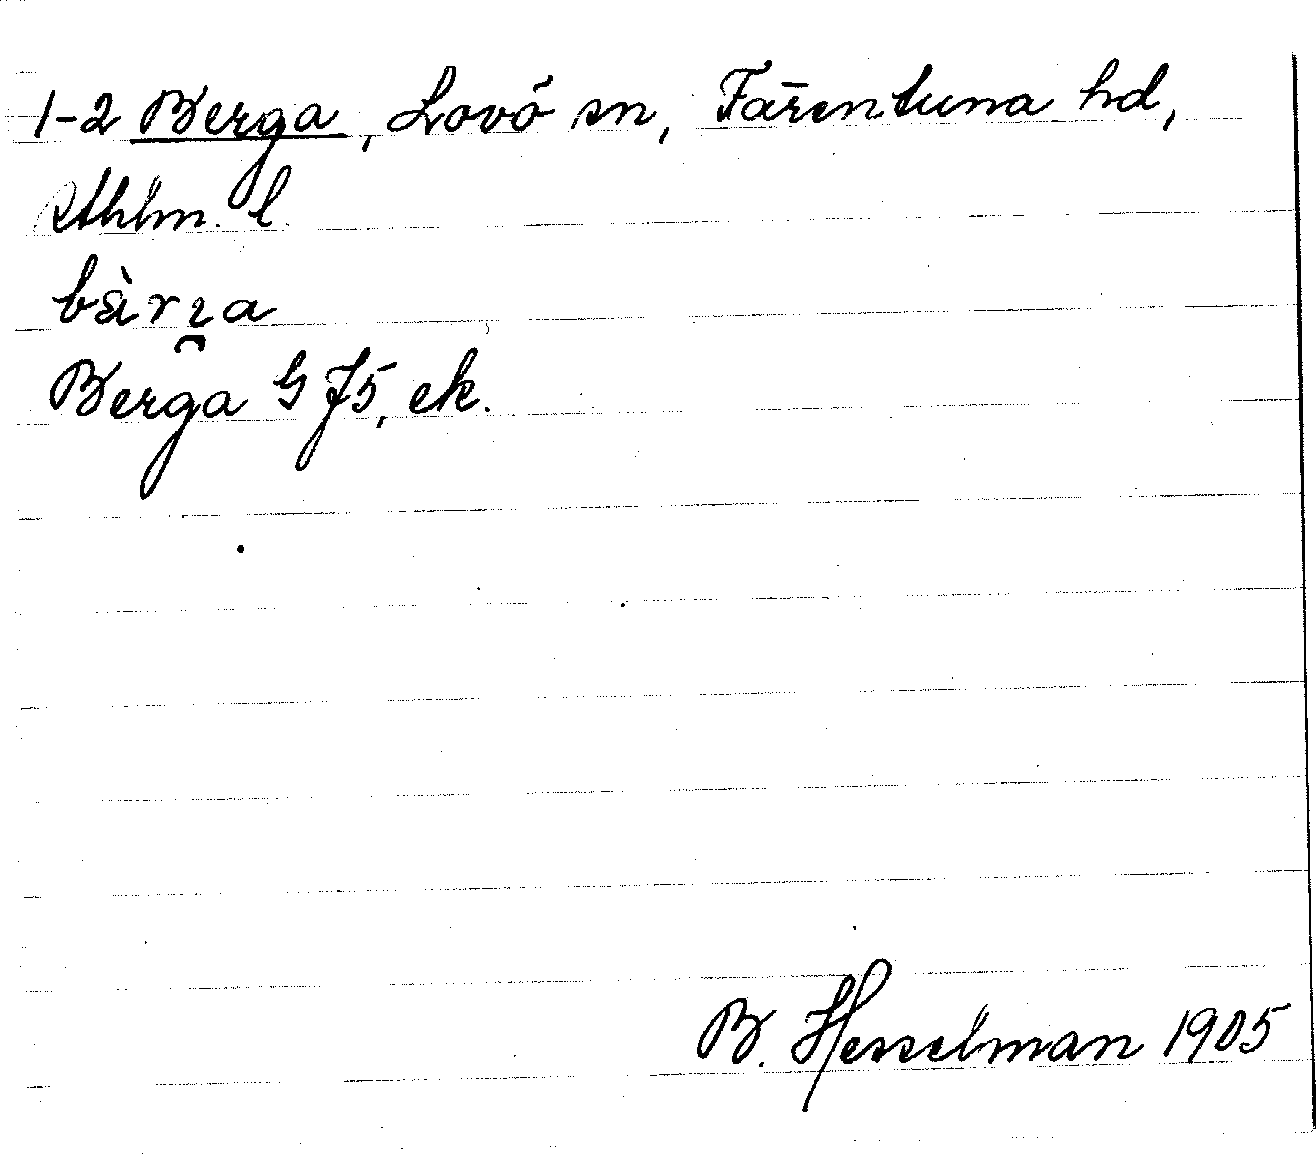 1-2 Berga, Lovö sn, Färentuna hd,
Sthlm. l.
bàrɪ̯a
Berga G J5, ek.
B. Hesselman 1905